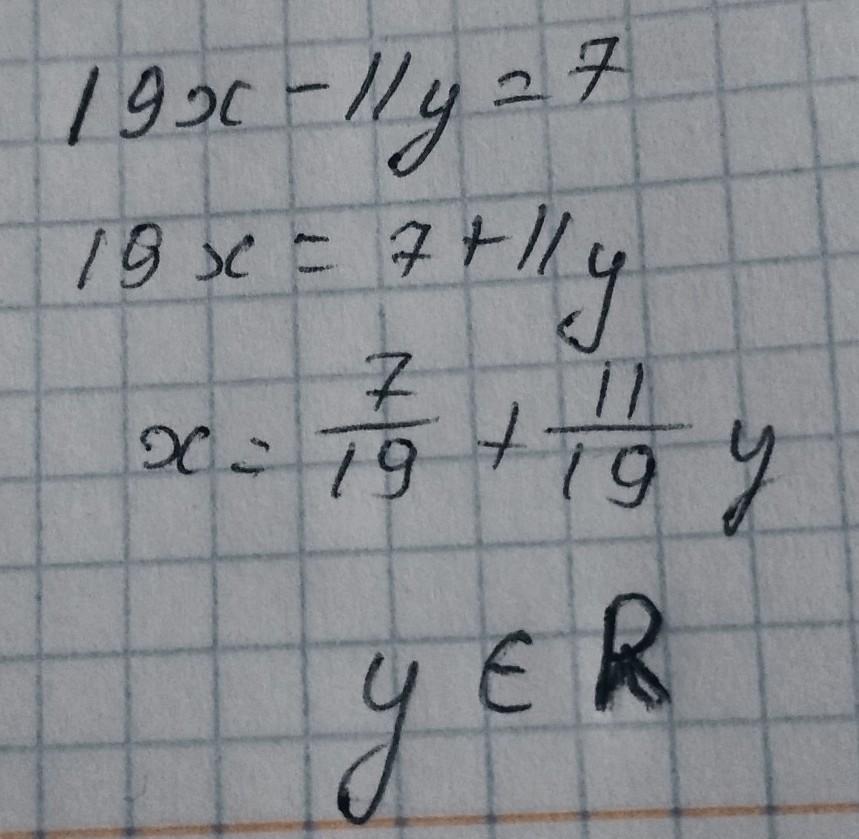 19x - 11y = 7
19x = 7 + 11y
x = 7/19 + 11/19 y
y ∈ R